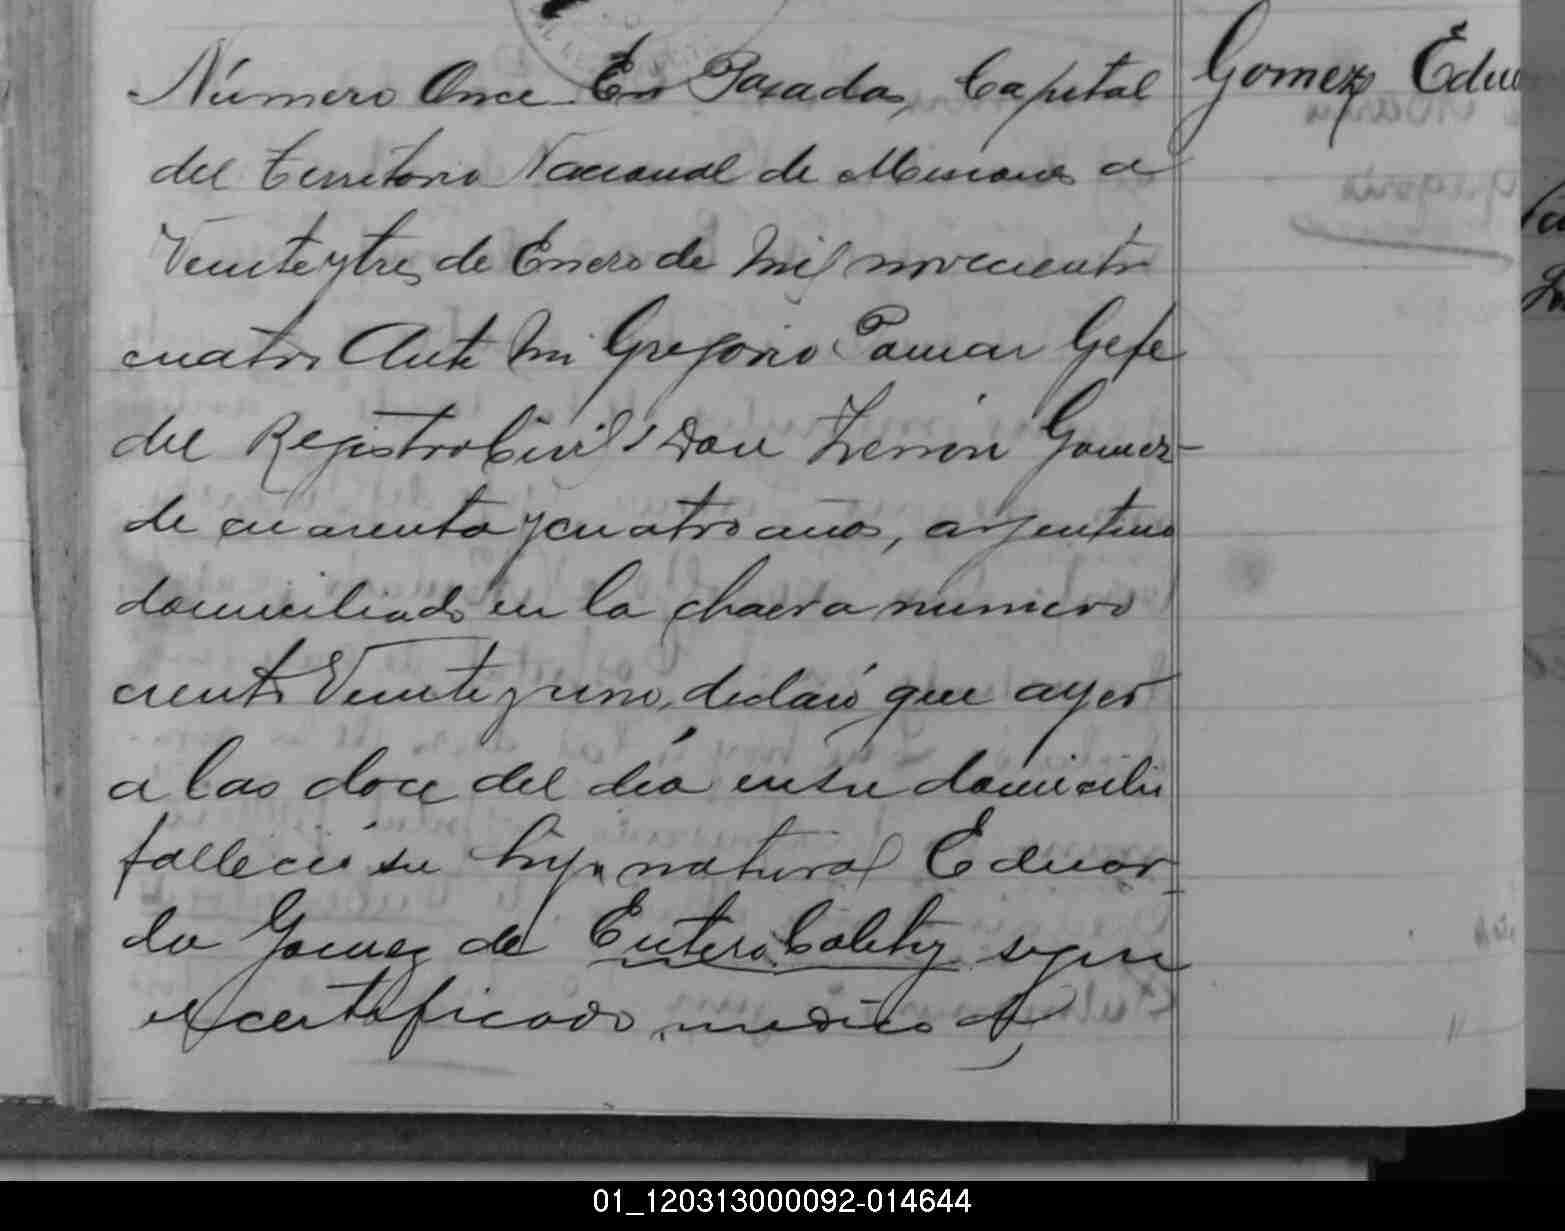 Número Once En Posadas, Capital
del Territorio Nacional de Misiones a
Veinteytres de Enero de Mil novecientos
cuatro Ante Mi Gregorio Pomar Gefe
del Registro Civil, Don Fermin Gomez
de cuarenta y cuatro años, argentino
domiciliado en la chacra numero
ciento Veinte y uno, declaró que ayer
a las doce del dia en su domicilio
falleció su hijo natural Eduar-
do Gomez de Entero Colitis segun
el certificado medico
Gomez Edua
01_120313000092-014644